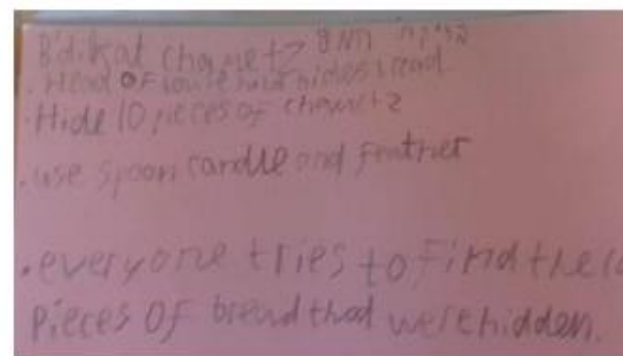 B'dikat chametz בדיקת חמץ
• Head of household hides bread
• Hide 10 pieces of chametz
• use spoon candle and feather
• everyone tries to find the 10
pieces of bread that were hidden.